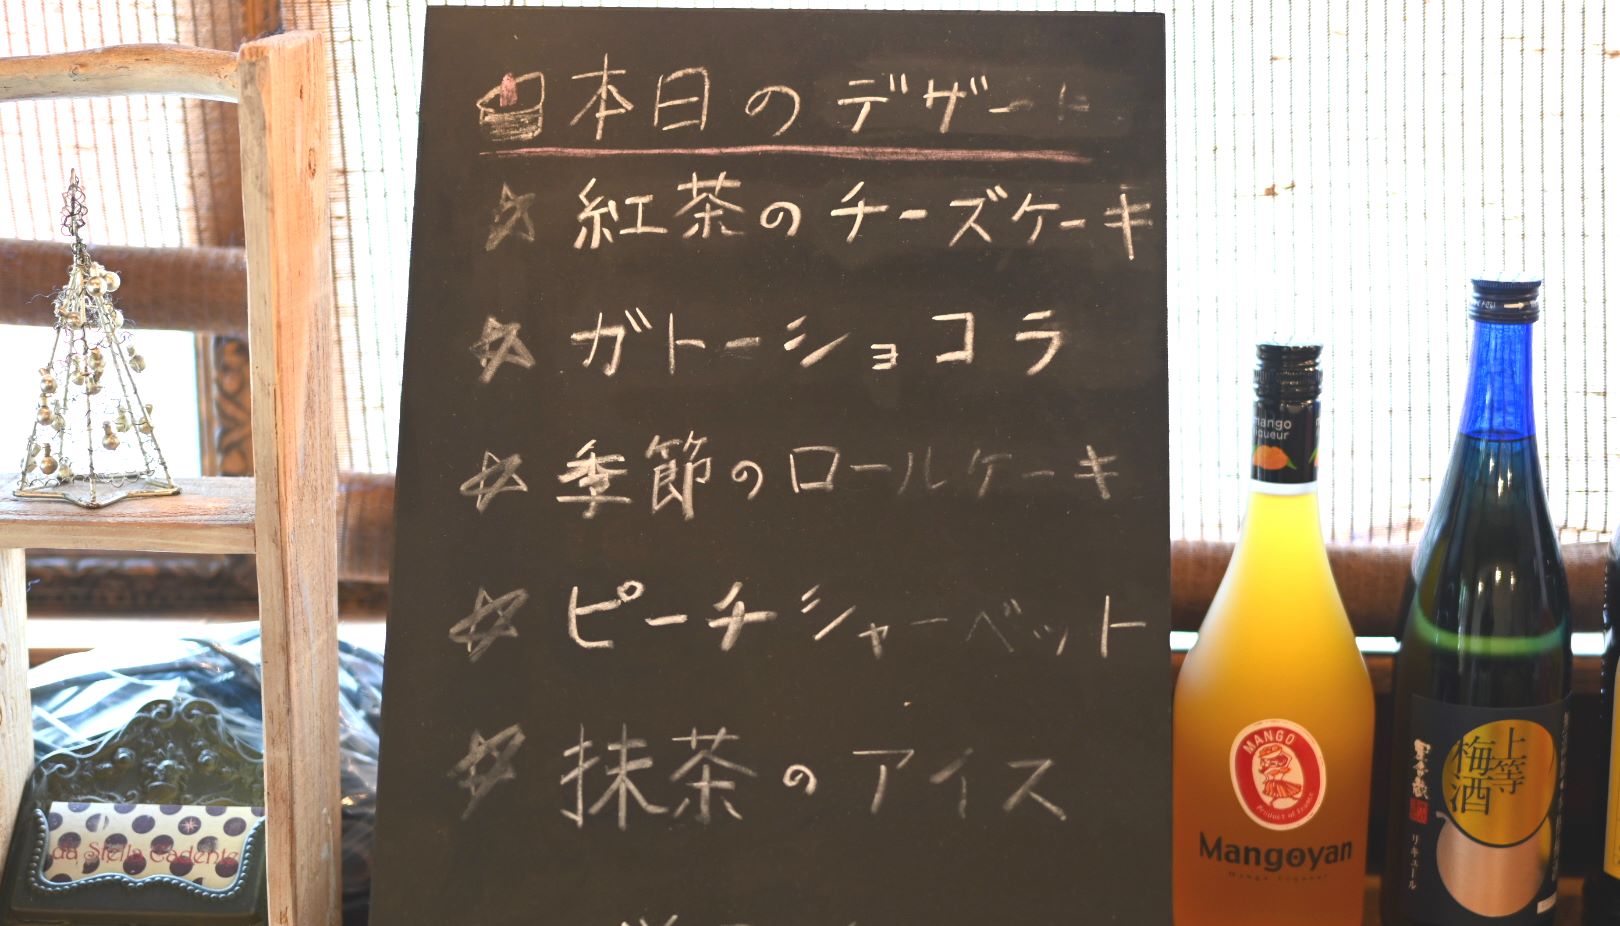 本日のデザート
紅茶のチーズケーキ
ガトーショコラ
季節のロールケーキ
ピーチシャーベット
抹茶のアイス
da Stella Cadente
mango
liqueur
MANGO
Product of France
Mangoyan
Mango Liqueur
上等
梅酒
リキュール